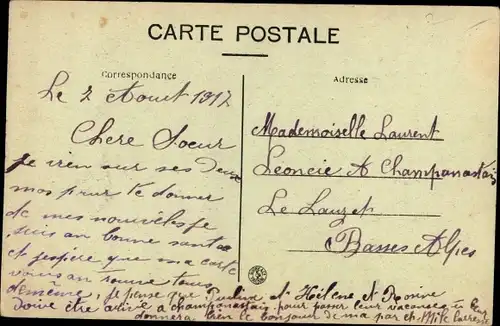 CARTE POSTALE
Correspondance
Adresse
Le 2 Aout 1917
Chere Soeur
Je vien sur ses deux
mos pour te donner
de mes nouvelles je
suis an bonne santee
et j'espere que ma carte
vous an trouve tous
demême, je pense que et Hélène et
doive être arivé a champanastais pour passer leur vacanse
donnera bien le bonjour de ma par et Mlle
Mademoiselle Laurent
Leoncie A Champanastais
Le Lauzet
Basses Alpes